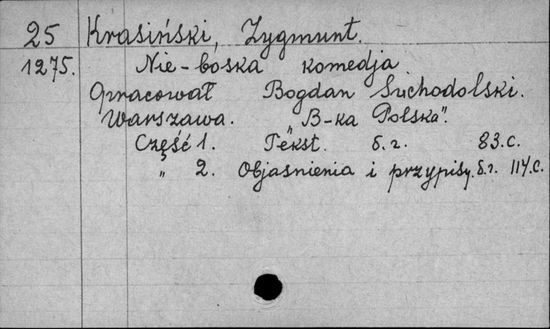 25 Krasiński, Zygmunt.
1275. Nie-boska komedja
Opracował Bogdan Suchodolski.
Warszawa. „B-ka Polska".
Część 1. Tekst. б.г. 83.с.
„ 2. Objaśnienia i przypisy. б.г. 114.с.